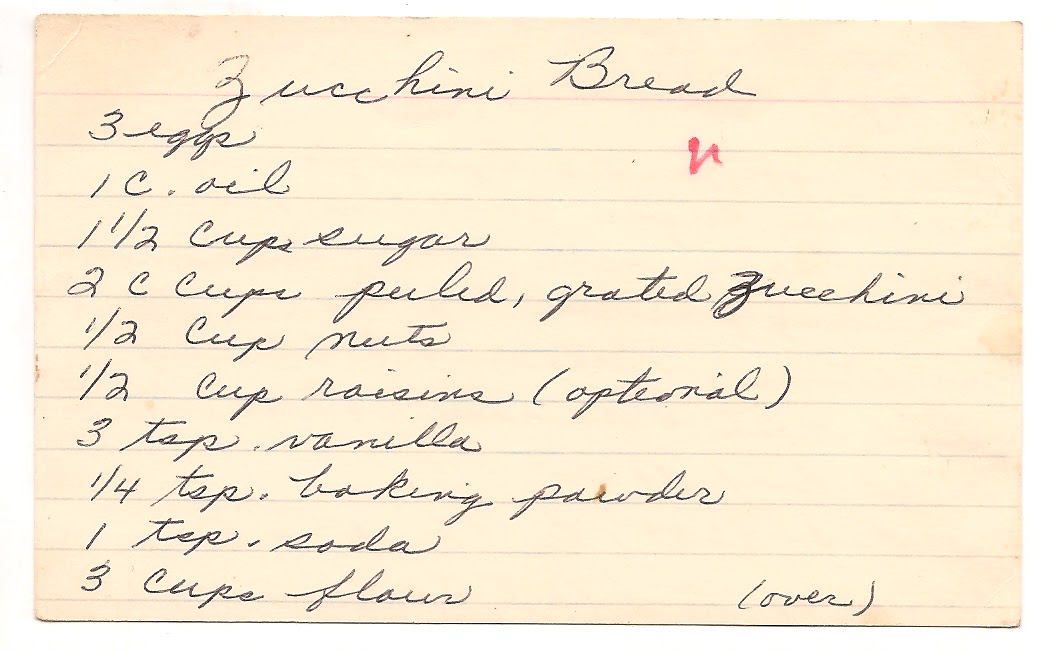 Zucchini Bread
3 eggs
n
1 C. oil
1 1/2 cups sugar
2 C Cups peeled, grated Zucchini
1/2 Cup nuts
1/2 cup raisins (optional)
3 tsp. vanilla
1/4 tsp. baking powder
1 tsp. soda
3 cups flour (over)